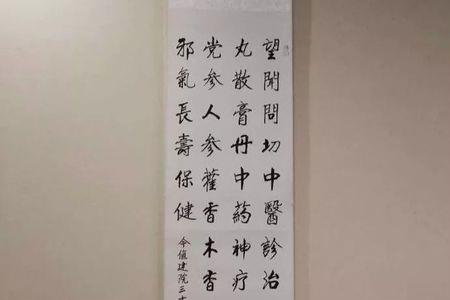 望闻問切中醫診治
丸散膏丹中药神疗
党参人参藿香木香
邪氣長壽保健
令值建院三十